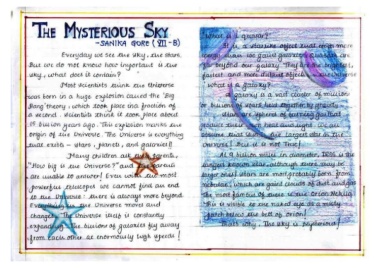 THE MYSTERIOUS SKY
- SANIKA GORE (VII - B)
Everyday we see the sky, the stars.
But we do not know how important is the
sky, what does it contain?
Most scientists think the Universe
was born in a huge explosion called the 'Big
Bang' theory, which took place in a fraction of
a second. Scientists think it took place about
billion years ago. This explosion marks the
origin of the Universe. The Universe is everything
that exists - stars, planets, and galaxies!
Many children ask
"How big is the Universe?" and
are unable to answer! Even with the most
powerful telescopes we cannot find an end
to the Universe: there is always more beyond.
Everything in the Universe moves and
changes. The Universe itself is constantly
expanding, with billions of galaxies fly away
from each other at enormously high speeds!
What is a quasar?
It is a starlike object that emits more
than giant galaxies which are
beyond our galaxy. They are the brightest,
fastest and most distant objects in the Universe
What is a galaxy?
A galaxy is a vast cluster of million
or billion of stars held together by gravity.
Stars are spheres of burning gas that
produce their own heat and light. Many
assume that the largest star is the
Universe! But it is not true!
At 2 billion miles in diameter
biggest known star although there may be
larger ones! Stars are most probably born from
nebulae, which are giant clouds of dust and gas.
The most famous of these is the Orion Nebula
This is visible to the naked eye as a misty
patch below the belt of Orion!
That's why, the sky is mysterious!